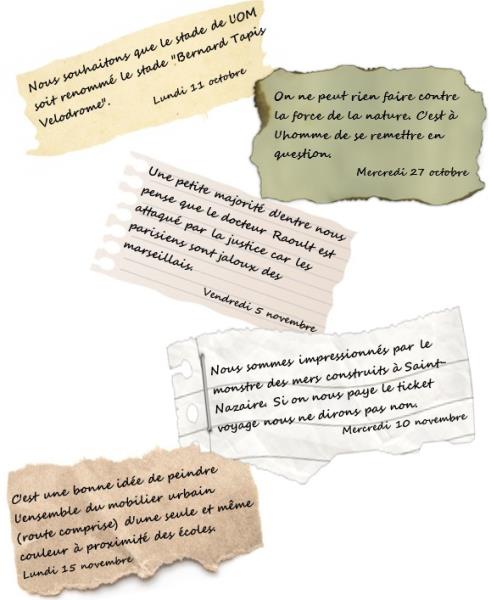 Nous souhaitons que le stade de L'OM
soit renommé le stade "Bernard Tapis
Velodrome".
Lundi 11 octobre
On ne peut rien faire contre
la force de la nature. C'est à
L'homme de se remettre en
question.
Mercredi 27 octobre
Une petite majorité d'entre nous
pense que le docteur Raoult est
attaqué par la justice car les
parisiens sont jaloux des
marseillais.
Vendredi 5 novembre
Nous sommes impressionnés par le
monstre des mers construits à Saint-
Nazaire. Si on nous paye le ticket
voyage nous ne dirons pas non.
Mercredi 10 novembre
C'est une bonne idée de peindre
L'ensemble du mobilier urbain
(route comprise) d'une seule et même
couleur à proximité des écoles.
Lundi 15 novembre